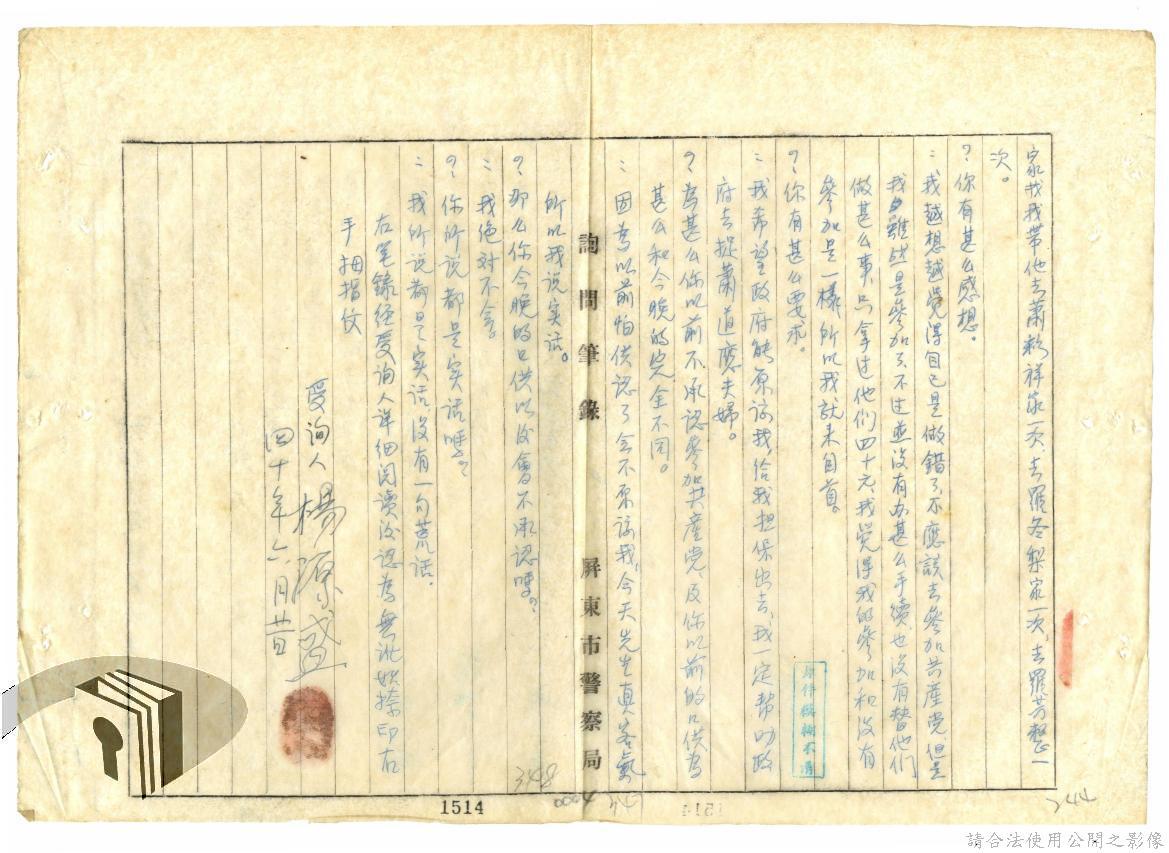 家找我帶他去蕭㪁祥家一次、去羅冬梨家一次、去羅芳整一
次。
？你有甚么感想。
：我越想越覺得自己是做錯了、不應該去參加共產党但是
我雖然是參加了、不过並没有办甚么手續、也没有替他們
做甚么事、只拿过他們四十元、我覺得我的參加和没有
參加是一樣、所以我就来自首。
？你有甚么要求。
：我希望政府能原諒我、给我担保出去、我一定帮助政
府去捉蕭道應夫婦。
？為甚么你以前不承認參加共產党、反你以前的口供為
甚么和今晚的完全不同。
：因為以前怕供認了会不原諒我、今天先生真客氣
所以我说实话。
？那么你今晚的口供以後會不承認嗎？
：我绝对不会。
？你所说都是实话嗎？
：我所说都是实话、没有一句荒话。
右笔錄经受询人详细阅讀後認為無訛始捺印右
手拇指仪
受询人楊源盛
四十年六月廿日
詢問筆錄
屏東市警察局
原件模糊不清
348
0004
1514
344
請合法使用公開之影像